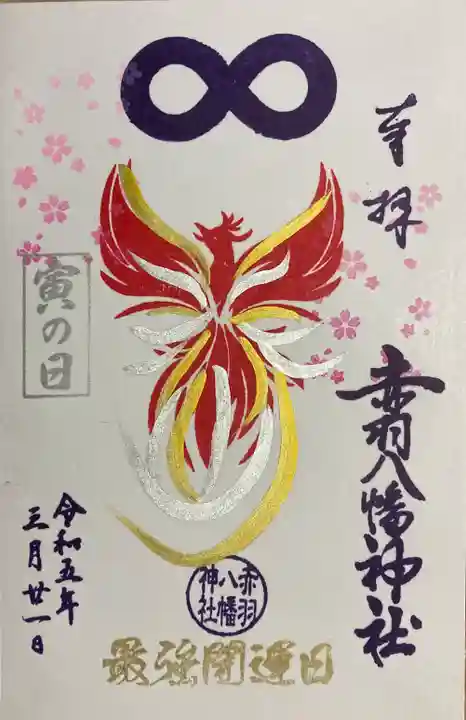 奉拝
赤羽八幡神社
寅の日
赤羽
八幡
神社
最強開運日
令和五年
三月廿一日